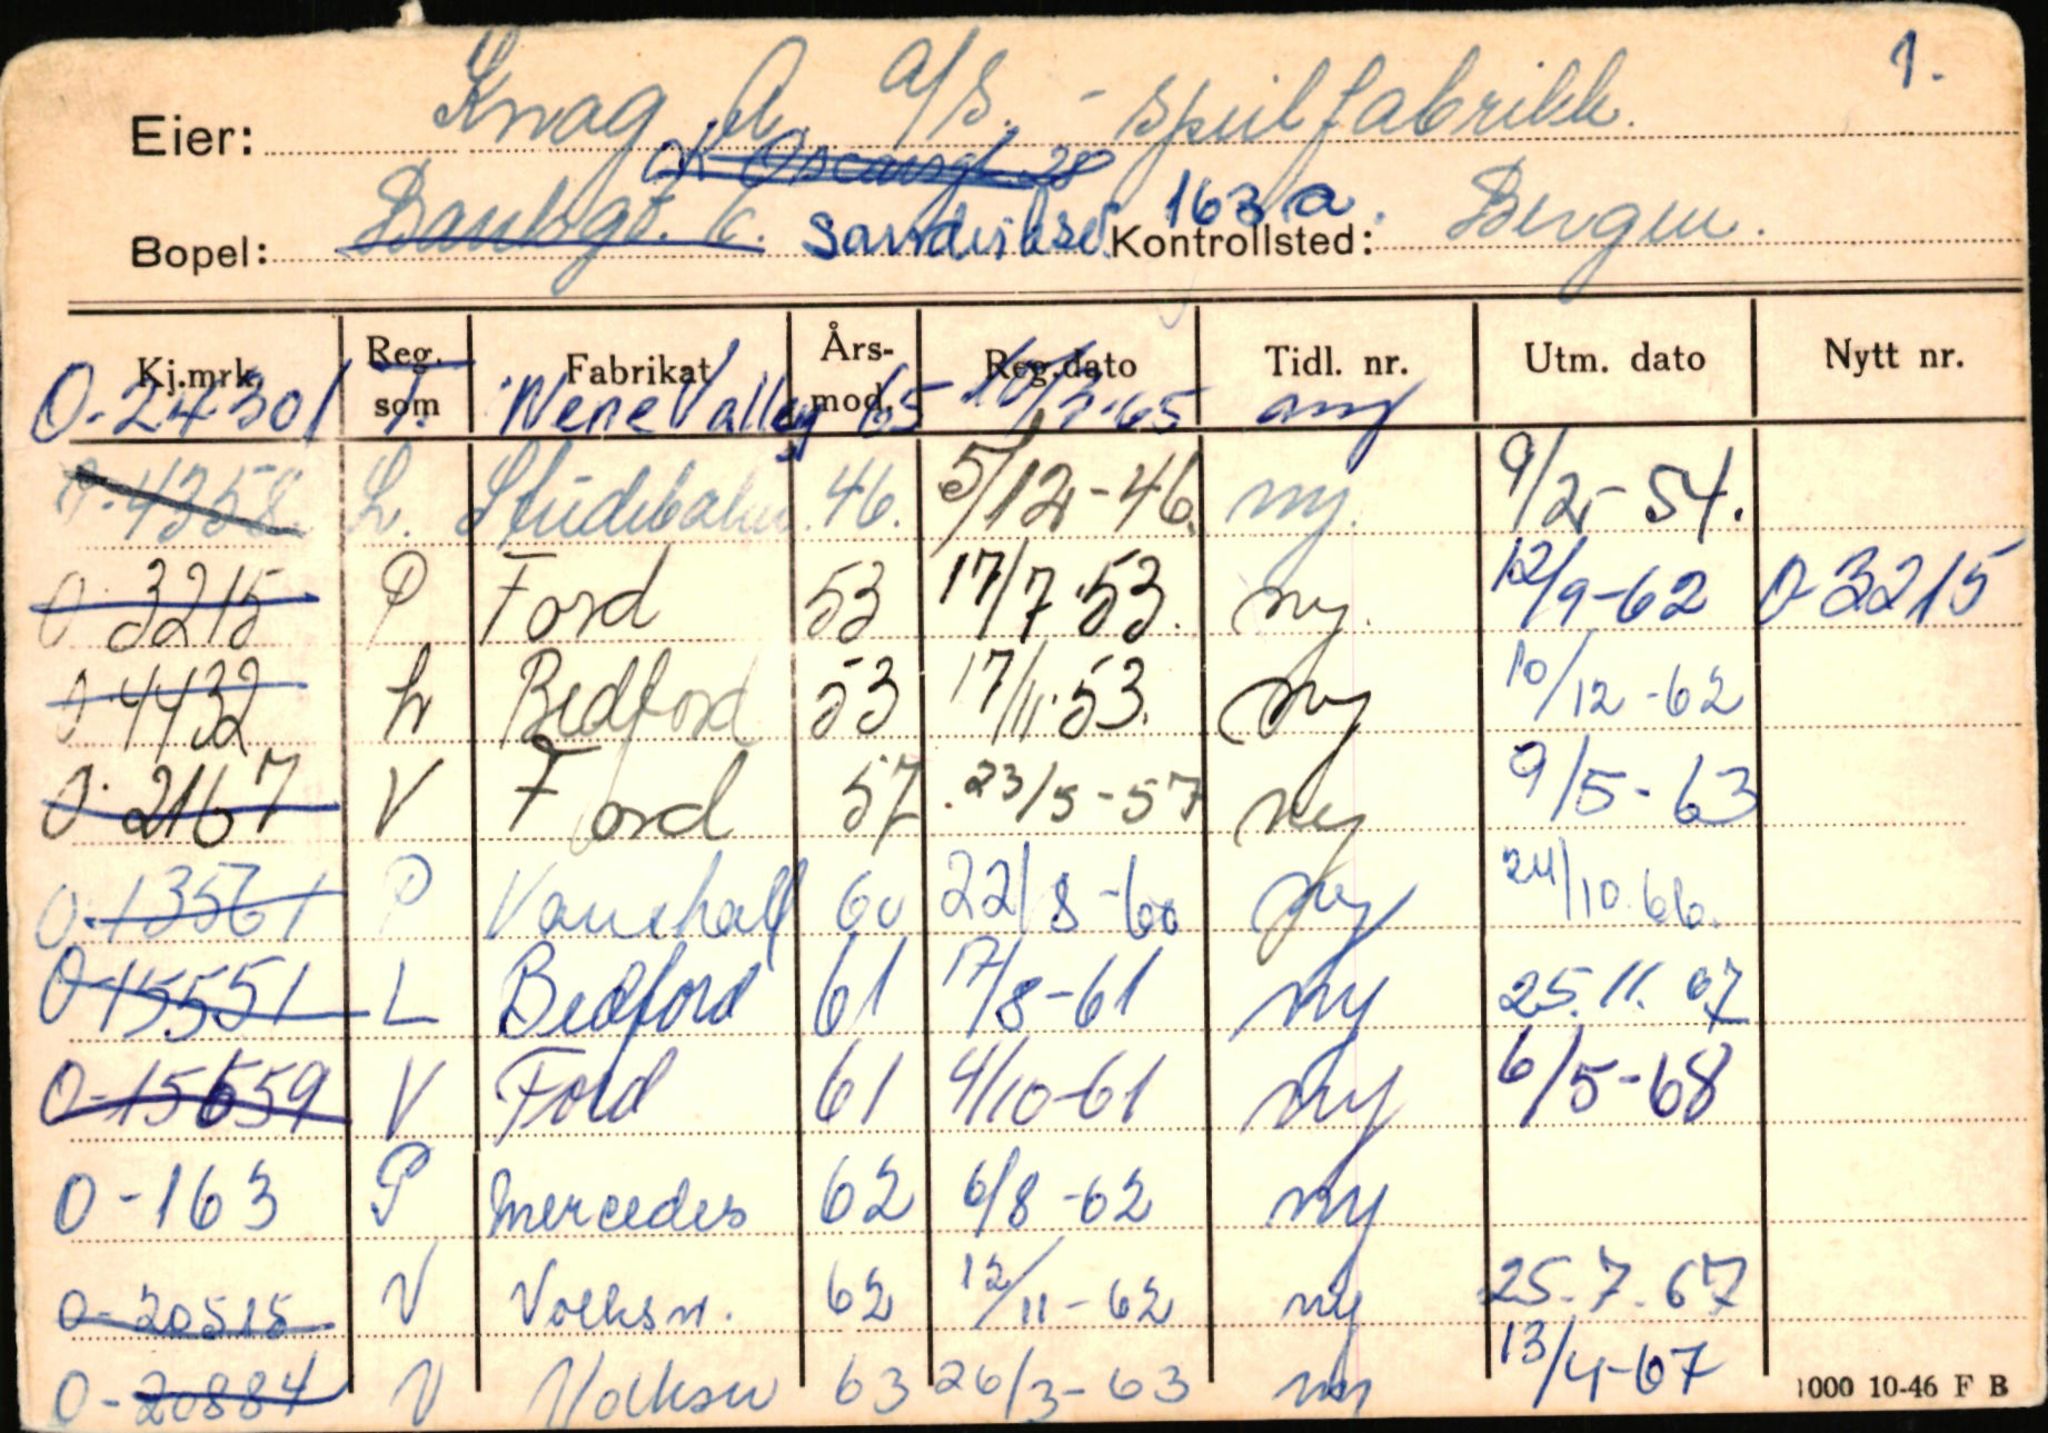 1.
Eier: Knag A. A/S. - speilfabrikk.
K Oscarsgt 28
Bopel: Bankgt. 6. Sandviksv. 163 a. Kontrollsted: Bergen.
Kj.mrk. Reg. som Fabrikat Års-mod. Reg.dato Tidl. nr. Utm. dato Nytt nr.
O-24301 T. Nene Valley 65 10/3-65 ny
O-4358 L. Studebaker 46. 5/12-46. ny. 9/2-54.
O-3215 P Ford 53 17/7-53. ny. 12/9-62 O-3215
O-4432 L Bedford 53 17/11-53. ny 10/12-62
O-2167 V Ford 57 23/5-57 ny 9/5-63
O-13561 P Vauxhall 60 22/8-60 ny 24/10.66.
O-15551 L Bedford 61 17/8-61 ny 25.11.67
O-15659 V Ford 61 4/10-61 ny 6/5-68
O-163 P Mercedes 62 6/8-62 ny
O-20515 V Volksw. 62 12/11-62 ny 25.7.67
O-20884 V Volksw 63 26/3-63 ny 13/4-67
1000 10-46 F B